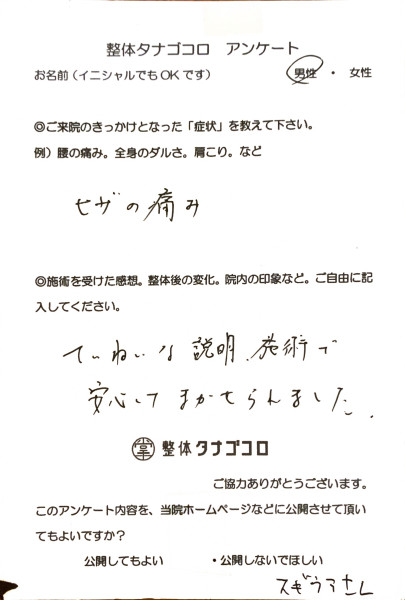 整体タナゴコロ　アンケート
お名前（イニシャルでもOKです）　男性　・　女性
◎ご来院のきっかけとなった「症状」を教えて下さい。
例）腰の痛み。全身のダルさ。肩こり。など
ヒザの痛み
◎施術を受けた感想。整体後の変化。院内の印象など。ご自由に記
入してください。
ていねいな説明、施術で
安心してまかせられました。
掌 整体タナゴコロ
ご協力ありがとうございます。
このアンケート内容を、当院ホームページなどに公開させて頂い
てもよいですか？
公開してもよい　・公開しないでほしい